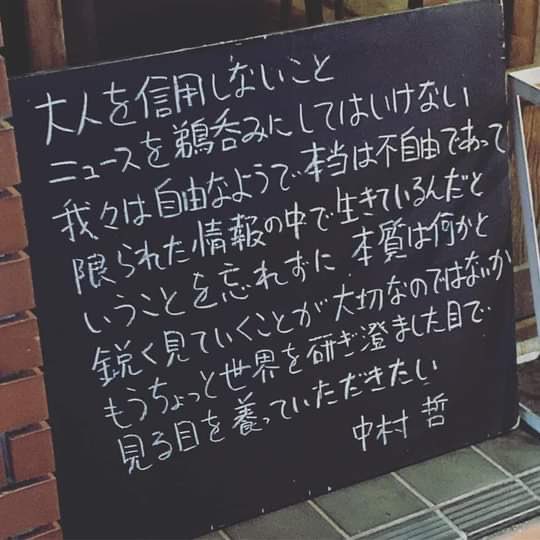 大人を信用しないこと
ニュースを鵜呑みにしてはいけない
我々は自由なようで、本当は不自由であって
限られた情報の中で生きているんだと
いうことを忘れずに 本質は何かと
鋭く見ていくことが大切なのではないか
もうちょっと世界を研ぎ澄ました目で
見る目を養っていただきたい
中村 哲